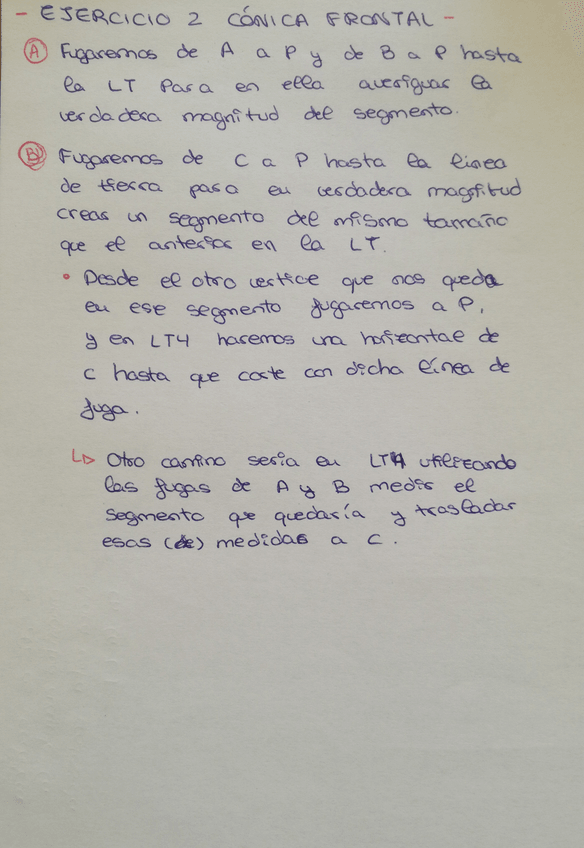 - EJERCICIO 2 CÓNICA FRONTAL -
A Fugaremos de A a P y de B a P hasta
la LT para en ella averiguar la
verdadera magnitud del segmento.
B Fugaremos de C a P hasta la línea
de tierra para en verdadera magnitud
crear un segmento del mismo tamaño
que el anterior en la LT.
• Desde el otro vertice que nos queda
en ese segmento fugaremos a P,
y en LT4 haremos una horizontal de
C hasta que corte con dicha línea de
fuga.
↳ Otro camino sería en LT4 utilizando
las fugas de A y B medir el
segmento que quedaría y trasladar
esas (de) medidas a C.